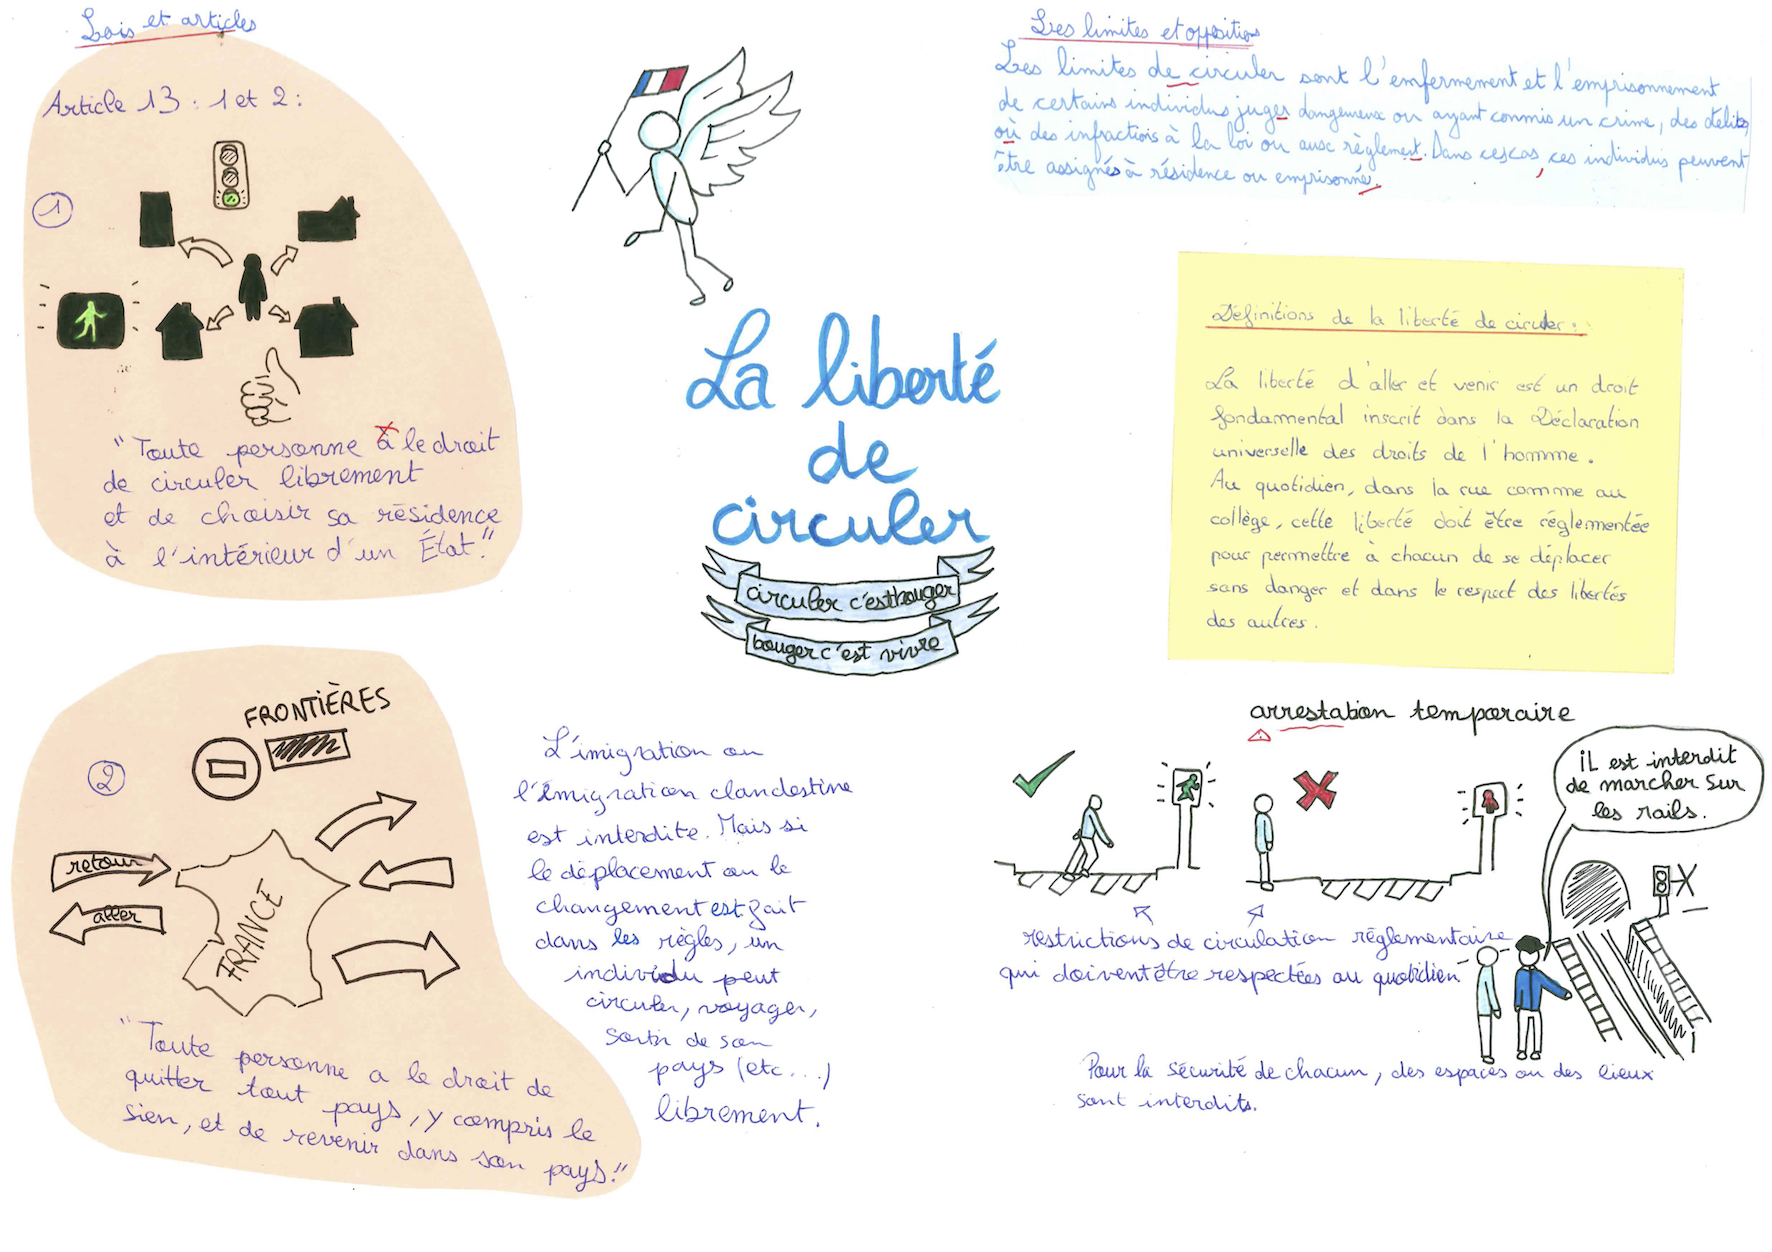 Lois et articles
Article 13 : 1 et 2 :
1
"Toute personne a le droit
de circuler librement
et de choisir sa résidence
à l'intérieur d'un État."
FRONTIÈRES
2
retour
aller
FRANCE
"Toute personne a le droit de
quitter tout pays, y compris le
sien, et de revenir dans son pays."
L'imigration ou
l'émigration clandestine
est interdite. Mais si
le déplacement ou le
changement est fait
dans les règles, un
individu peut
circuler, voyager,
sortir de son
pays (etc...)
librement.
La liberté
de
circuler
circuler c'est bouger
bouger c'est vivre
Les limites et opposition
Les limites de circuler sont l'emfermement et l'emprisonnement
de certains individus juges dangereux ou ayant commis un crime, des délits,
où des infractions à la loi ou aux règlement. Dans ces cas, ces individus peuvent
être assignés à résidence ou emprisonné.
Définitions de la liberté de circuler :
La liberté d'aller et venir est un droit
fondamental inscrit dans la Déclaration
universelle des droits de l'homme.
Au quotidien, dans la rue comme au
collège, cette liberté doit être réglementée
pour permettre à chacun de se déplacer
sans danger et dans le respect des libertés
des autres.
arrestation temporaire
iL est interdit
de marcher sur
les rails.
restrictions de circulation réglementaire
qui doivent être respectées au quotidien
Pour la sécurité de chacun, des espaces ou des lieux
sont interdits.